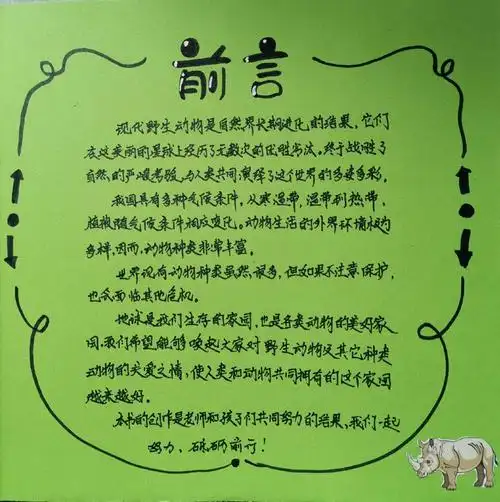 前言
现代野生动物是自然界长期进化的结果，它们
在这美丽的星球上经历了无数次的优胜劣汰。终于战胜了
自然的严峻考验，与人类共同演绎了这个世界的多姿多彩。
我国具有多种气候条件，从寒温带，温带到热带，
植被随气候条件相应变化。动物生活的外界环境极为
多样，因而，动物种类非常丰富。
世界现有动物种类虽然很多，但如果不注意保护，
也会面临其他危机。
地球是我们生存的家园，也是各类动物的美好家
园，我们希望能够唤起大家对野生动物及其它种类
动物的关爱之情，使人类和动物共同拥有的这个家园
越来越好。
本书的创作是老师和孩子们共同努力的结果，我们一起
努力，砥砺前行！